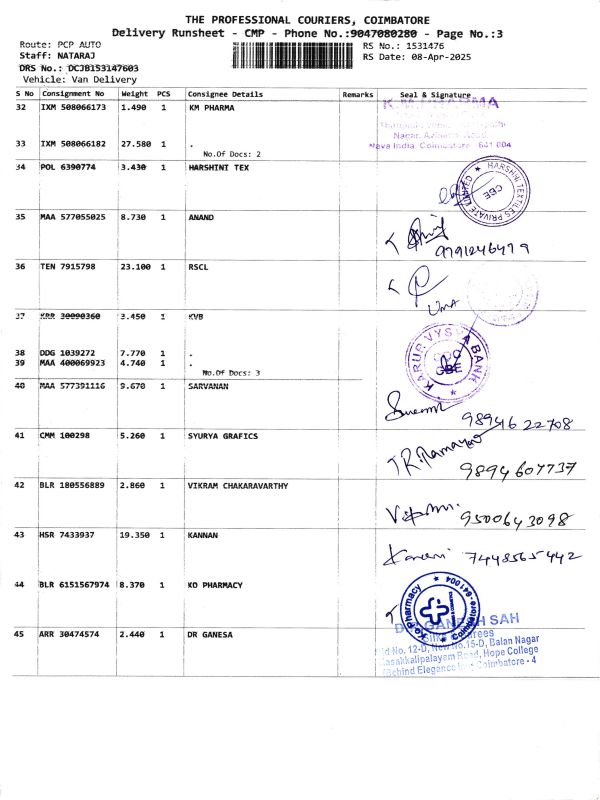 THE PROFESSIONAL COURIERS, COIMBATORE
Delivery Runsheet - CMP - Phone No.:9047080280 - Page No.:3
Route: PCP AUTO
RS No.: 1531476
Staff: NATARAJ
RS Date: 08-Apr-2025
DRS No.: DCJB153147603
Vehicle: Van Delivery
S No Consignment No Weight PCS Consignee Details Remarks Seal & Signature
32 IXM 508066173 1.490 1 KM PHARMA
Nagar,
Nava India, Coimbatore - 641 004
33 IXM 508066182 27.580 1 .
No.Of Docs: 2
34 POL 6390774 3.430 1 HARSHINI TEX
HARSHNI TEXTILES PRIVATE LIMITED
CBE
35 MAA 577055025 8.730 1 ANAND
9791246479
36 TEN 7915798 23.100 1 RSCL
Uma
37 KRR 30090360 3.450 1 KVB
KARUR VYSYA BANK
CBE
38 DDG 1039272 7.770 1 .
39 MAA 400069923 4.740 1 .
No.Of Docs: 3
40 MAA 577391116 9.670 1 SARVANAN
98941622708
41 CMM 100298 5.260 1 SYURYA GRAFICS
9894607737
42 BLR 180556889 2.860 1 VIKRAM CHAKARAVARTHY
9500643098
43 HSR 7433937 19.350 1 KANNAN
7448565442
44 BLR 6151567974 8.370 1 KO PHARMACY
Ko Pharmacy
Coimbatore-641004
45 ARR 30474574 2.440 1 DR GANESA
SAH
No. 12-D, New No.15-D, Balan Nagar
Masakkalipalayam Road, Hope College
(Behind Elegance Coimbatore - 4